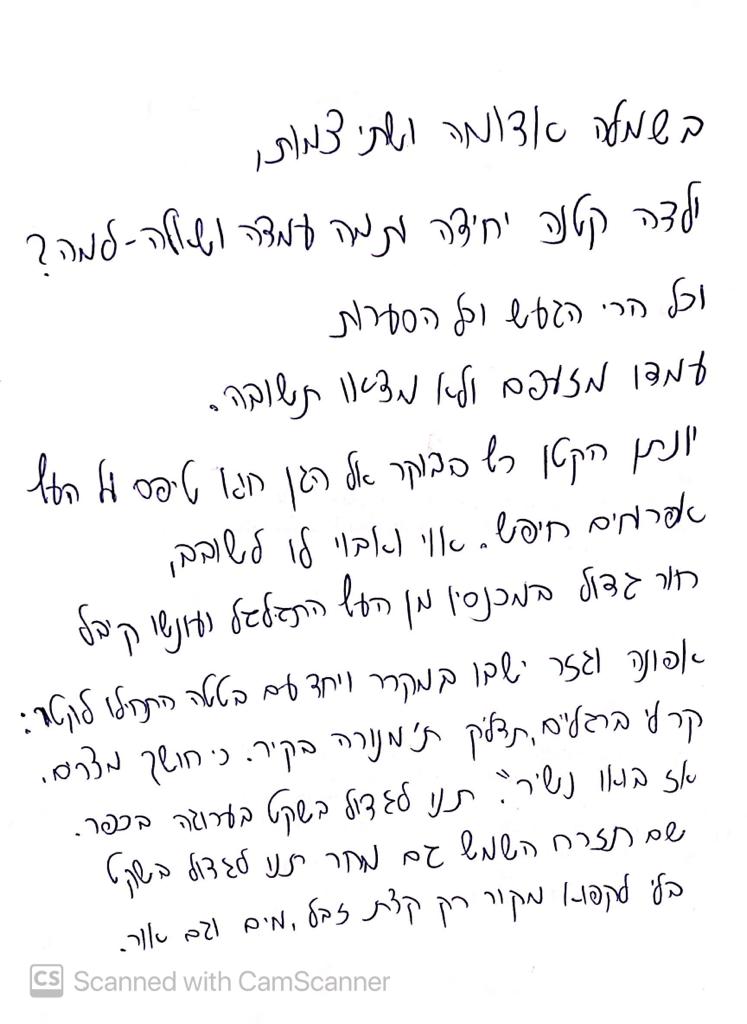 בשמלה אדומה ושתי צמות,
ילדה קטנה יחידה ותמה עמדה ושאלה-למה?
וכל הרי הגעש וכל הסערות
עמדו מזעפם ולא מצאו תשובה.
יונתן הקטן רץ בבוקר אל הגן הוא טיפס על העץ
אפרוחים חיפש. אוי ואבוי לו לשובב,
חור גדול במכנסיו מן העץ התגלגל ועונשו קיבל
אפונה וגזר ישבו במקרר ויחד עם בטטה התחילו לקטר:
קר לי ברגליים, תדליק ת'מנורה בקיר. כי חושך מצרים.
אז בואו נשיר": תנו לגדול בשקט בערוגה בכפר.
שם תזרח השמש גם מחר תנו לגדול בשקט
בלי לקפוא מקור רק קצת זבל, מים וגם אור.
CS Scanned with CamScanner